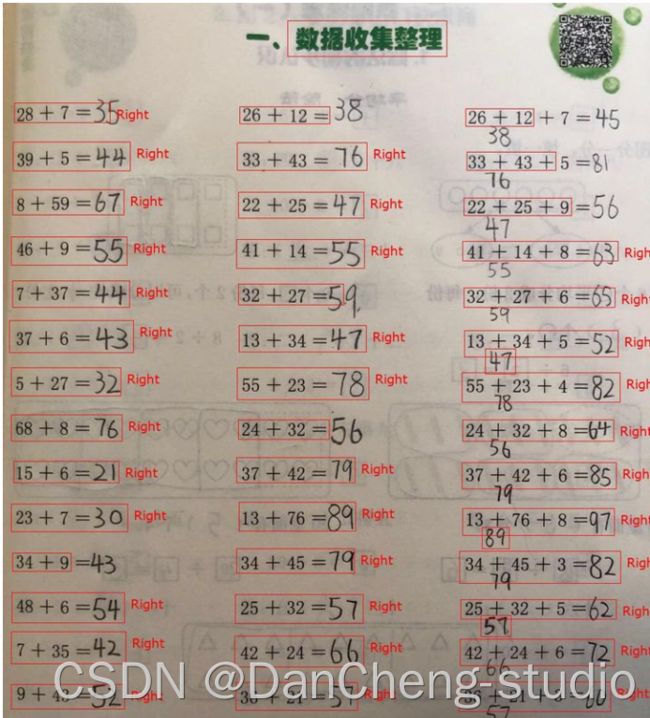 一、数据收集整理
28 + 7 = 35 Right 26 + 12 = 38 26 + 12 + 7 = 45
38
39 + 5 = 44 Right 33 + 43 = 76 Right 33 + 43 + 5 = 81
76
8 + 59 = 67 Right 22 + 25 = 47 Right 22 + 25 + 9 = 56
47
46 + 9 = 55 Right 41 + 14 = 55 Right 41 + 14 + 8 = 63 Right
55
7 + 37 = 44 Right 32 + 27 = 59 32 + 27 + 6 = 65 Right
59
37 + 6 = 43 Right 13 + 34 = 47 Right 13 + 34 + 5 = 52 Right
47
5 + 27 = 32 Right 55 + 23 = 78 Right 55 + 23 + 4 = 82 Right
78
68 + 8 = 76 Right 24 + 32 = 56 24 + 32 + 8 = 64 Right
56
15 + 6 = 21 Right 37 + 42 = 79 Right 37 + 42 + 6 = 85 Right
79
23 + 7 = 30 Right 13 + 76 = 89 Right 13 + 76 + 8 = 97 Right
89
34 + 9 = 43 34 + 45 = 79 Right 34 + 45 + 3 = 82 Right
79
48 + 6 = 54 Right 25 + 32 = 57 Right 25 + 32 + 5 = 62 Right
57
7 + 35 = 42 Right 42 + 24 = 66 Right 42 + 24 + 6 = 72 Right
66
9 + 43 = 52 Right 36 + 21 = 57 Right 36 + 21 + 3 = 60 Right
57
CSDN @DanCheng-studio